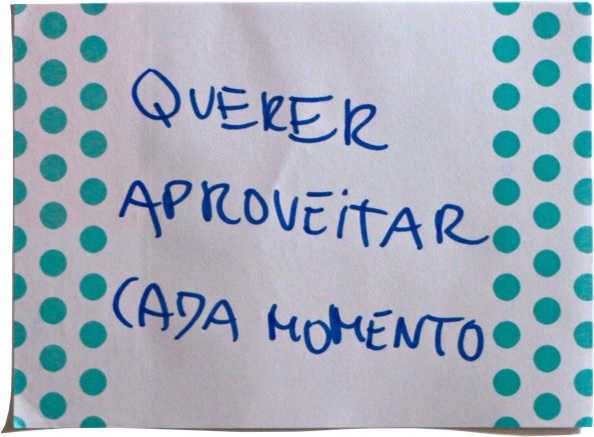 QUERER
APROVEiTAR
CADA MOMENTO